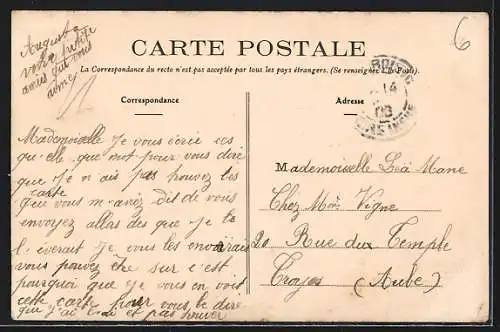 Auguste
votre petite
amies qui vous
aime
6
CARTE POSTALE
La Correspondance du recto n'est pas acceptée par tous les pays étrangers. (Se renseigner à la Poste).
Correspondance
Adresse
14
08
Mademoiselle Je vous écrie ces
qu-elle que mot pour vous dire
que Je n ais pas pouvez les
carte
que vous m-avez dit de vous
envoyez allors des que Je te
l iverait Je vous les envairais
vous pouvez être sur c'est
pourquoi que Je vous en voit
cette carte pour vous le dire
que j'ai et pas pouver
Mademoiselle Léa Mane
Chez Mme Vigne
20 Rue dux Temple
Troyes (Aube)